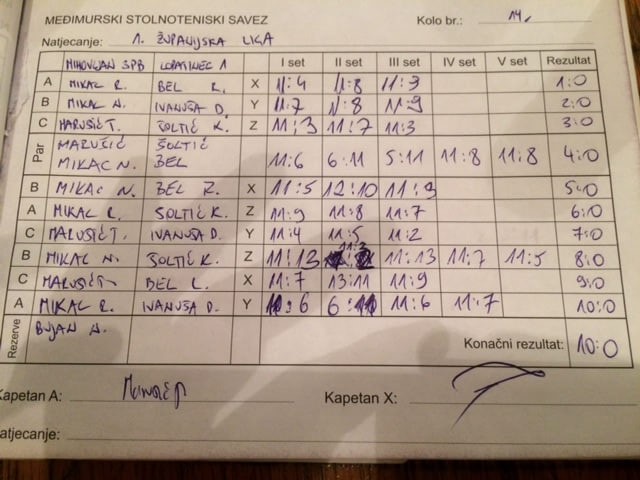 MEĐIMURSKI STOLNOTENISKI SAVEZ Kolo br.: 14.
Natjecanje: 1. ŽUPANIJSKA LIGA
MIHOVLJAN SPB LOPATINEC 1 I set II set III set IV set V set Rezultat
A MIKAC R. BEL R. X 11:4 11:8 11:3 1:0
B MIKAC N. IVANUŠA D. Y 11:7 11:8 11:9 2:0
C MARUŠIĆ T. ŠOLTIĆ K. Z 11:3 11:7 11:3 3:0
Par MARUŠIĆ MIKAC N. ŠOLTIĆ BEL 11:6 6:11 5:11 11:8 11:8 4:0
B MIKAC N. BEL R. X 11:5 12:10 11:9 5:0
A MIKAC R. ŠOLTIĆ K. Z 11:9 11:8 11:7 6:0
C MARUŠIĆ T. IVANUŠA D. Y 11:4 11:5 11:2 7:0
B MIKAC N. ŠOLTIĆ K. Z 11:13 11:3 11:13 11:7 11:5 8:0
C MARUŠIĆ T. BEL R. X 11:7 13:11 11:9 9:0
A MIKAC R. IVANUŠA D. Y 6 6:11 11:6 11:7 10:0
Rezerve BUJAN N. Konačni rezultat: 10:0
Kapetan A: Kapetan X:
Natjecanje: